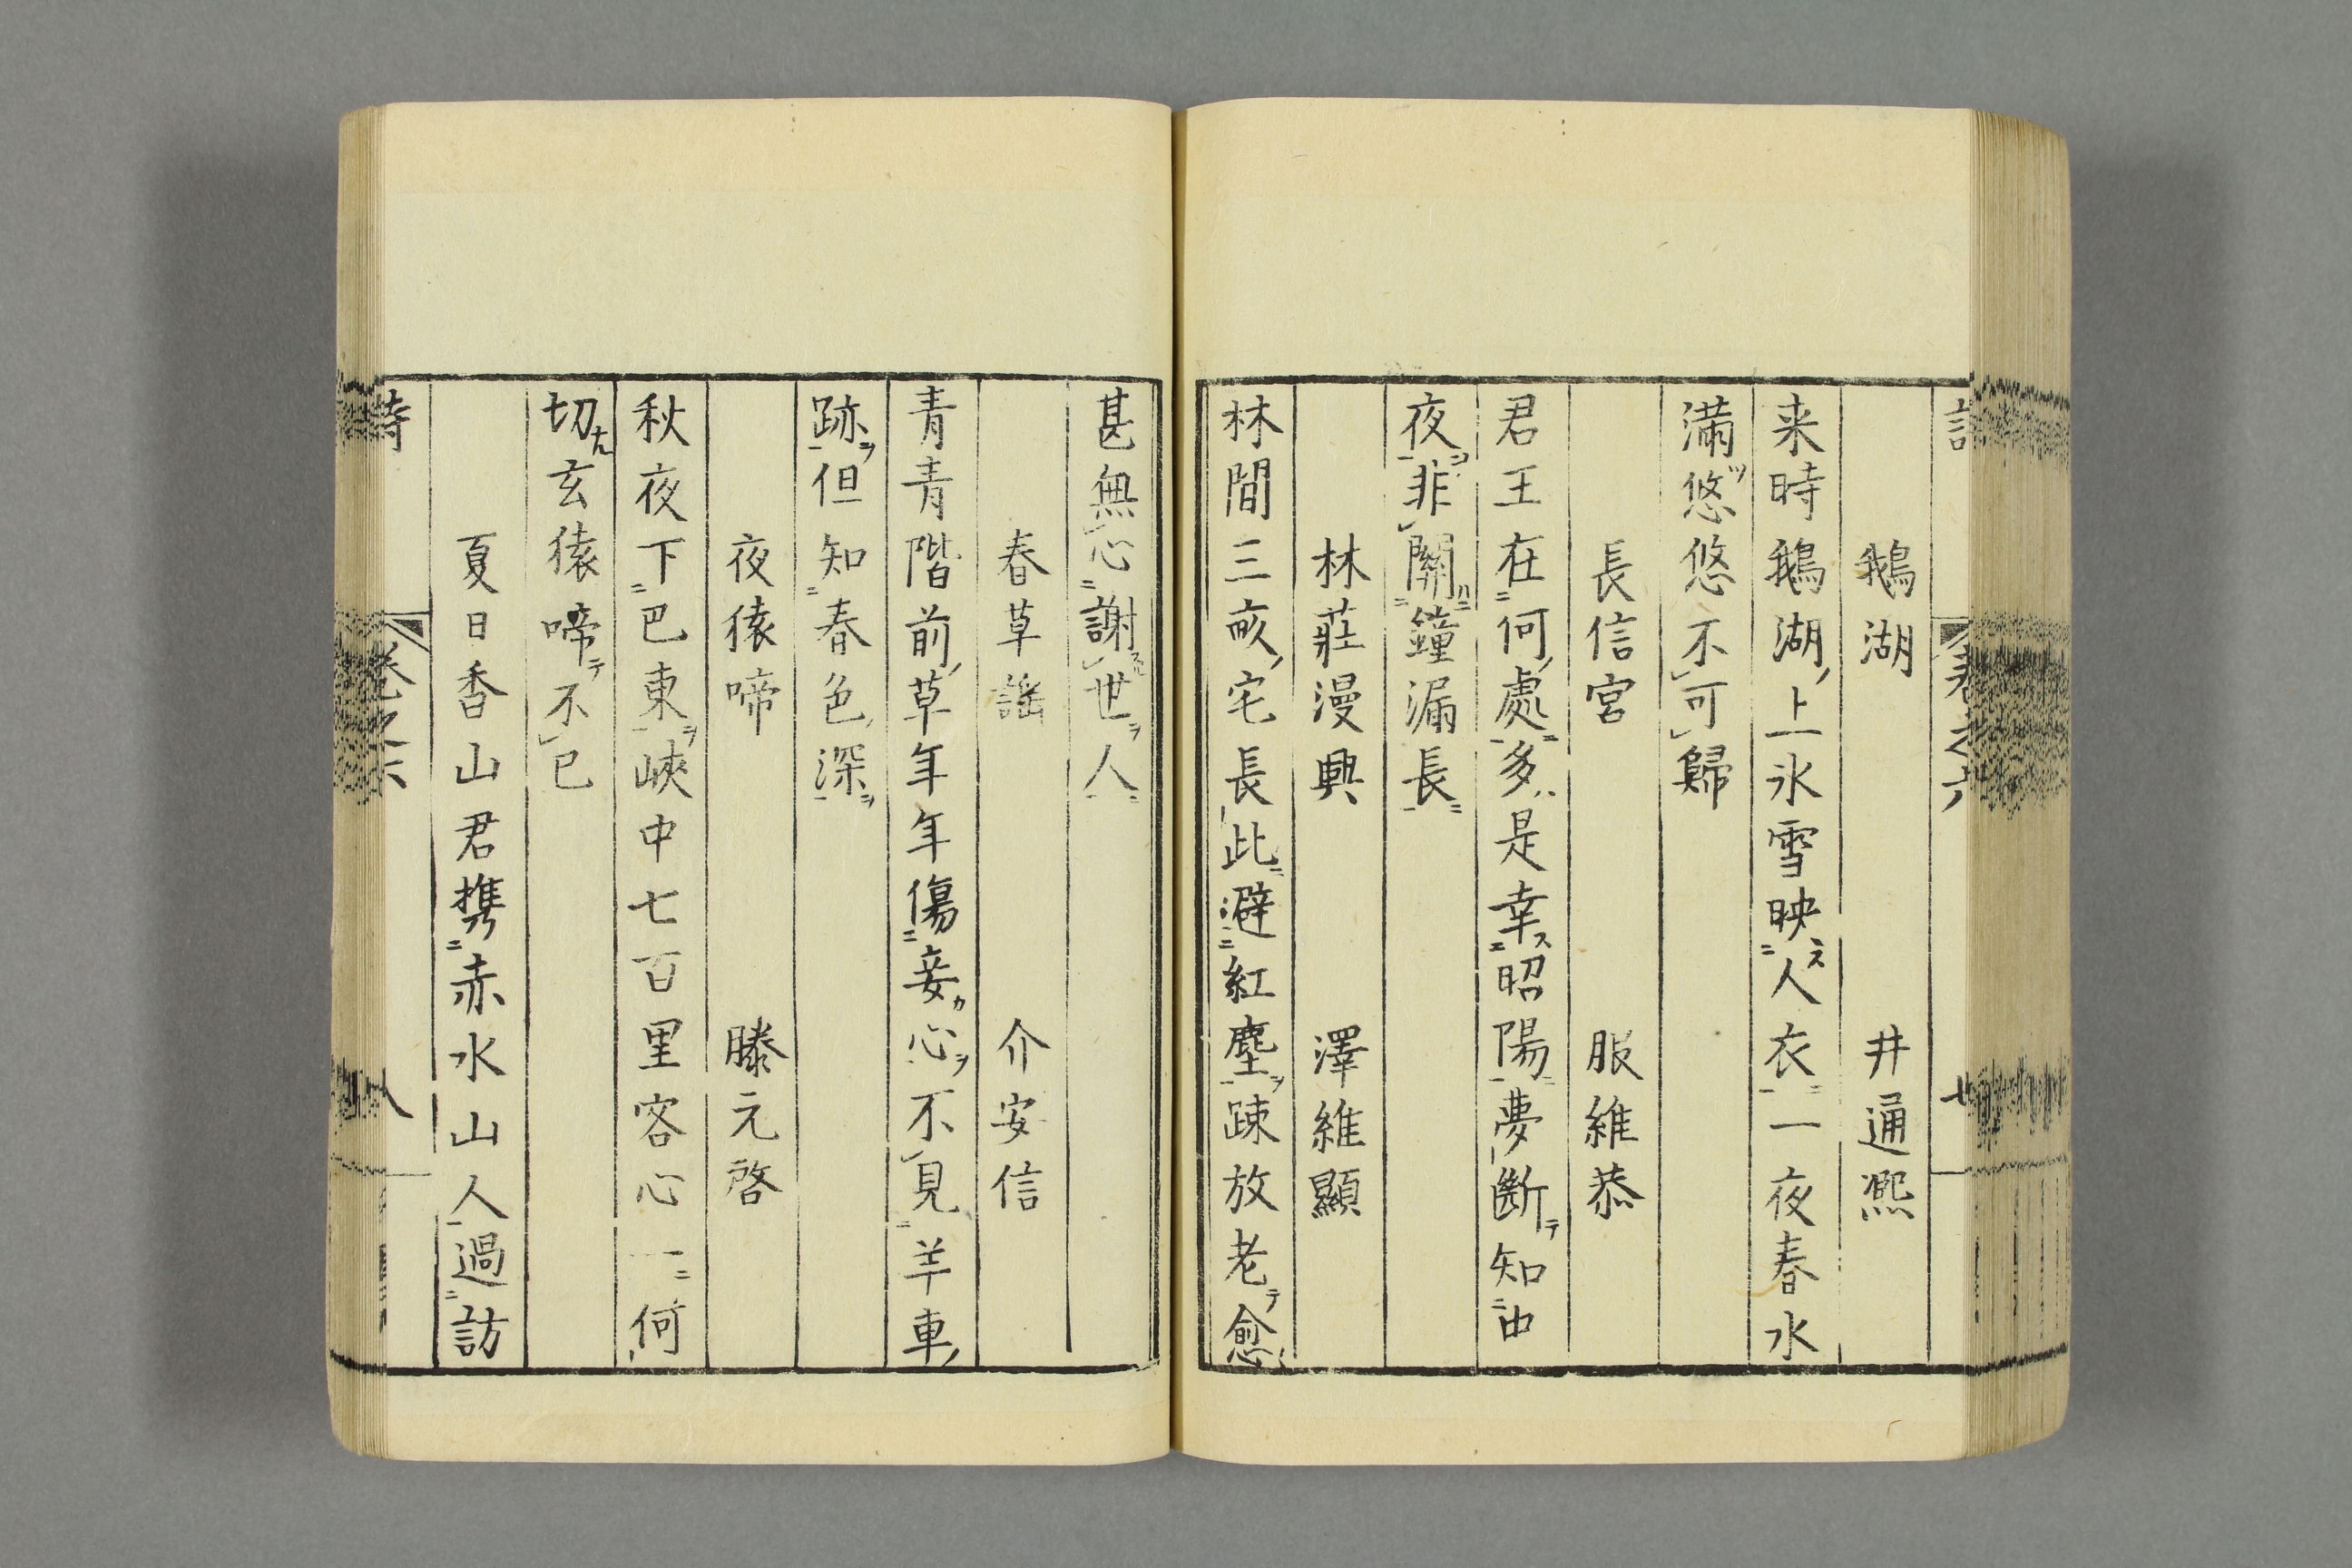 鵝湖　井通熈
来時鵝湖上氷雪映人衣一夜春水
滿悠悠不可歸
長信宮　服維恭
君王在何處多是幸昭陽夢斷知由
夜非關鐘漏長
林莊漫興　澤維顯
林間三畝宅長此避紅塵踈放老愈
甚無心謝世人
春草謡　介安信
青青階前草年年傷妾心不見羊車
跡但知春色深
夜猿啼　滕元啓
秋夜下巴東峽中七百里客心一何
切玄猿啼不已
夏日香山君携赤水山人過訪
卷之六
八